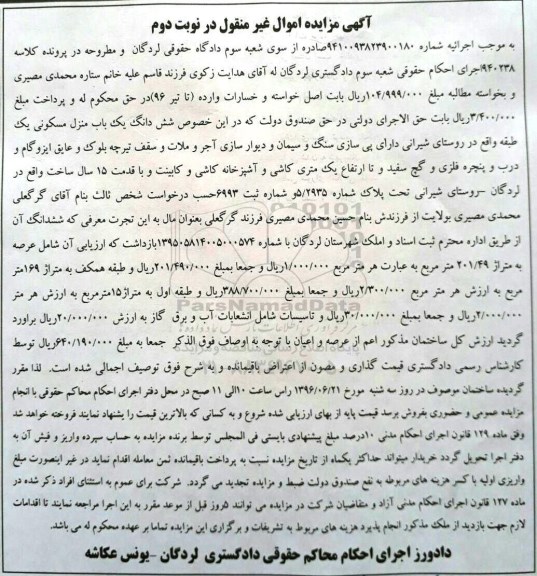 آگهی مزایده اموال غیر منقول در نوبت دوم
به موجب اجرائیه شماره ۹۴۱۰۰۹۳۸۲۳۹۰۰۱۸۰صادره از سوی شعبه سوم دادگاه حقوقی لردگان و مطروحه در پرونده کلاسه
۹۴۰۲۳۸اجرای احکام حقوقی شعبه سوم دادگستری لردگان له آقای هدایت زکوی فرزند قاسم علیه خانم ستاره محمدی مصیری
و بخواسته مطالبه مبلغ ۱۰۴/۹۹۹/۰۰۰ریال بابت اصل خواسته و خسارات وارده (تا تیر ۹۶)در حق محکوم له و پرداخت مبلغ
۳/۴۰۰/۰۰۰ریال بابت حق الاجرای دولتی در حق صندوق دولت که در این خصوص شش دانگ یک باب منزل مسکونی یک
طبقه واقع در روستای شیرانی دارای پی سازی سنگ و سیمان و دیوار سازی آجر و ملات و سقف تیرچه بلوک و عایق ایزوگام و
درب و پنجره فلزی و گچ سفید و تا ارتفاع یک متری کاشی و آشپزخانه کاشی و کابینت و با قدمت ۱۵ سال ساخت واقع در
لردگان –روستای شیرانی تحت پلاک شماره ۵/۲۹۳۵و شماره ثبت ۶۹۹۳حسب درخواست شخص ثالث بنام آقای گرگعلی
محمدی مصیری بولایت از فرزندش بنام حسین محمدی مصیری فرزند گرگعلی بعنوان مال به این تجرت معرفی که ششدانگ آن
از طریق اداره محترم ثبت اسناد و املاک شهرستان لردگان با شماره ۱۳۹۵۰۵۸۱۴۰۰۵۰۰۰۵۷۴بازداشت که ارزیابی آن شامل عرصه
به متراژ ۲۰۱/۴۹ متر مربع به عبارت هر متر مربع ۱/۰۰۰/۰۰۰ریال و جمعا بمبلغ ۲۰۱/۴۹۰/۰۰۰ریال و طبقه همکف به متراژ ۱۶۹متر
مربع به ارزش هر متر مربع ۲/۳۰۰/۰۰۰ریال و جمعا بمبلغ ۳۸۸/۷۰۰/۰۰۰ریال و طبقه اول به متراژ۱۵مترمربع به ارزش هر متر
۲/۰۰۰/۰۰۰ریال و جمعا بمبلغ ۳۰/۰۰۰/۰۰۰ریال و تاسیسات شامل انشعابات آب و برق گاز به ارزش ۲۰/۰۰۰/۰۰۰ریال براورد
گردید ارزش کل ساختمان مذکور اعم از عرصه و اعیان با توجه به اوصاف فوق الذکر جمعا به مبلغ ۶۴۰/۱۹۰/۰۰۰ریال توسط
کارشناس رسمی دادگستری قیمت گذاری و مصون از اعتراض باقیمانده و به شرح فوق توصیف اجمالی شده است. لذا مقرر
گردیده ساختمان موصوف در روز سه شنبه مورخ ۱۳۹۶/۰۶/۲۱ راس ساعت ۱۰الی ۱۱ صبح در محل دفتر اجرای احکام محاکم حقوقی با انجام
مزایده عمومی و حضوری بفروش برسد قیمت پایه از بهای ارزیابی شده شروع و به کسانی که بالاترین قیمت را پشنهاد نمایند فروخته خواهد شد
وفق ماده ۱۲۹ قانون اجرای احکام مدنی ۱۰درصد مبلغ پیشنهادی بایستی فی المجلس توسط برنده مزایده به حساب سپرده واریز و فیش آن به
دفتر اجرا تحویل گردد خریدار میتواند حداکثر یکماه از تاریخ مزایده نسبت به پرداخت باقیمانده ثمن معامله اقدام نماید در غیر اینصورت مبلغ
واریزی اولیه با کسر هزینه های مربوطه به نفع صندوق دولت ضبط و مزایده تجدید می گردد. شرکت برای عموم به استثنای افراد ذکر شده در
ماده ۱۲۷ قانون اجرای احکام مدنی آزاد و متقاضیان شرکت در مزایده می توانند ۵روز قبل از موعد مقرر به این اجرا مراجعه نمایند تا اقدامات
لازم جهت بازدید از ملک مذکور انجام پذیرد هزینه های مربوط به تشریفات و برگزاری این مزایده تماما بر عهده محکوم له می باشد.
دادورز اجرای احکام محاکم حقوقی دادگستری لردگان –یونس عکاشه
ParsNamadData